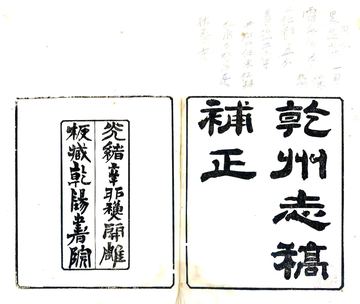 乾州志稿
補正
光緒辛卯穐開雕
板藏乾陽書院